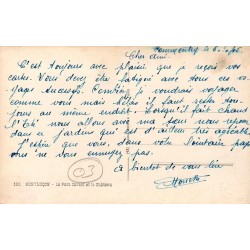 Commentry le 6 Sept
Cher ami
C'est toujours avec plaisir que je reçois vos
cartes. Vous devez être fatigué avec tous ces vo-
yages successifs. Combien je voudrais voyager
comme vous mais hélas il faut rester tou-
jours au même endroit. Lorsqu'il fait chaud
l'été nous allons avec ma sœur nous repo
dans ce jardin qui est d'ailleurs très ombragé
J'espère que vous, dans votre lointaine pa
vous ne vous ennuyez pas.
A bientôt de vous lire
03
MONTLUÇON - Le Parc et le Château